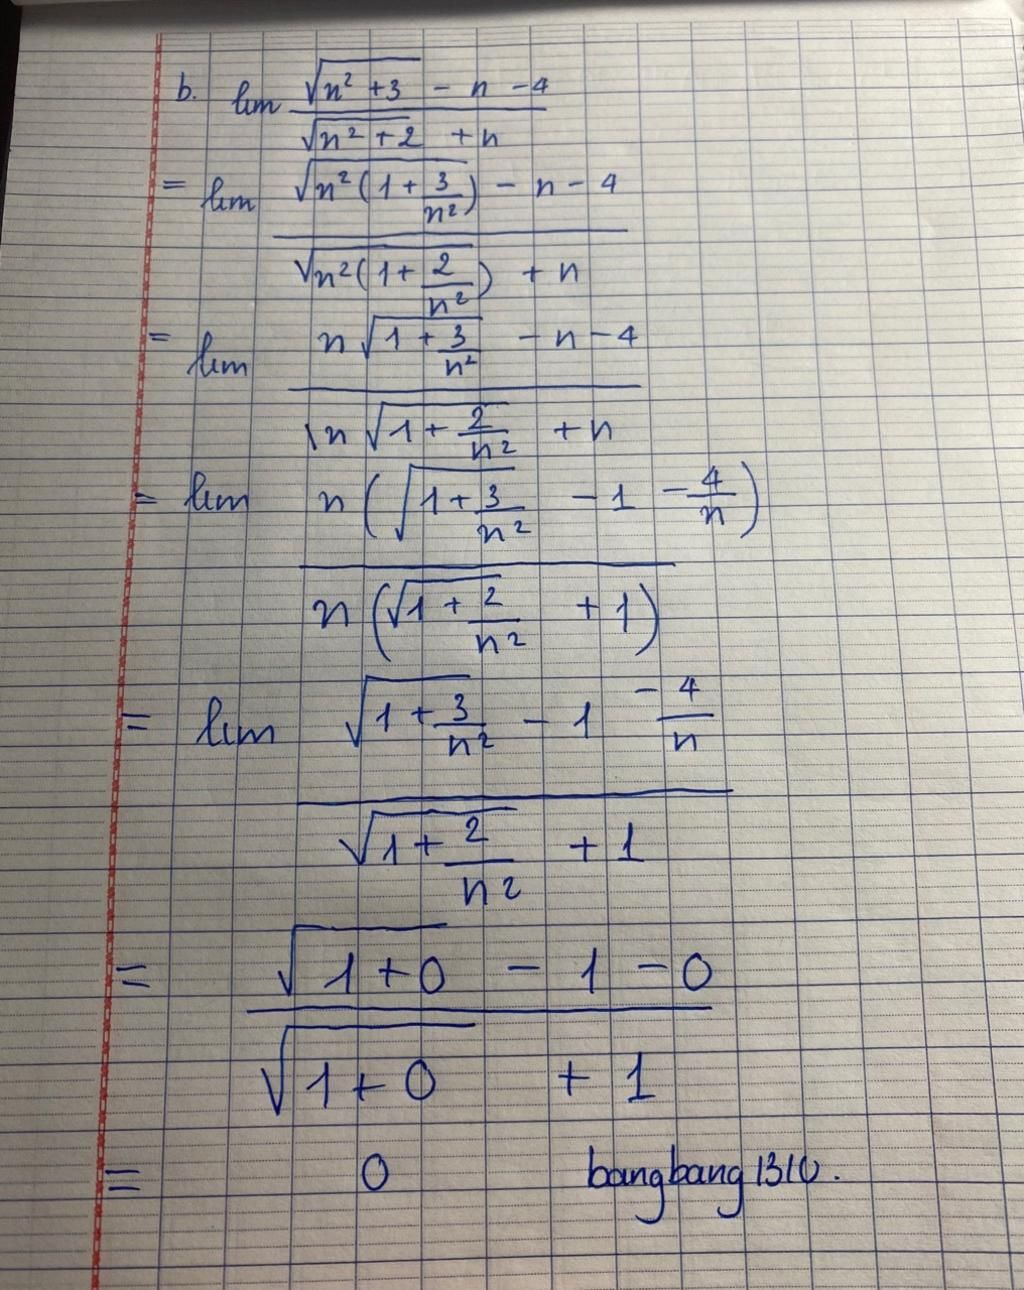 b. lim (√(n² + 3) - n - 4) / (√(n² + 2) + n)
= lim (√(n²(1 + 3/n²)) - n - 4) / (√(n²(1 + 2/n²)) + n)
= lim (n√(1 + 3/n²) - n - 4) / (n√(1 + 2/n²) + n)
= lim n(√(1 + 3/n²) - 1 - 4/n) / n(√(1 + 2/n²) + 1)
= lim (√(1 + 3/n²) - 1 - 4/n) / (√(1 + 2/n²) + 1)
= (√(1 + 0) - 1 - 0) / (√(1 + 0) + 1)
= 0 bangbang1310.